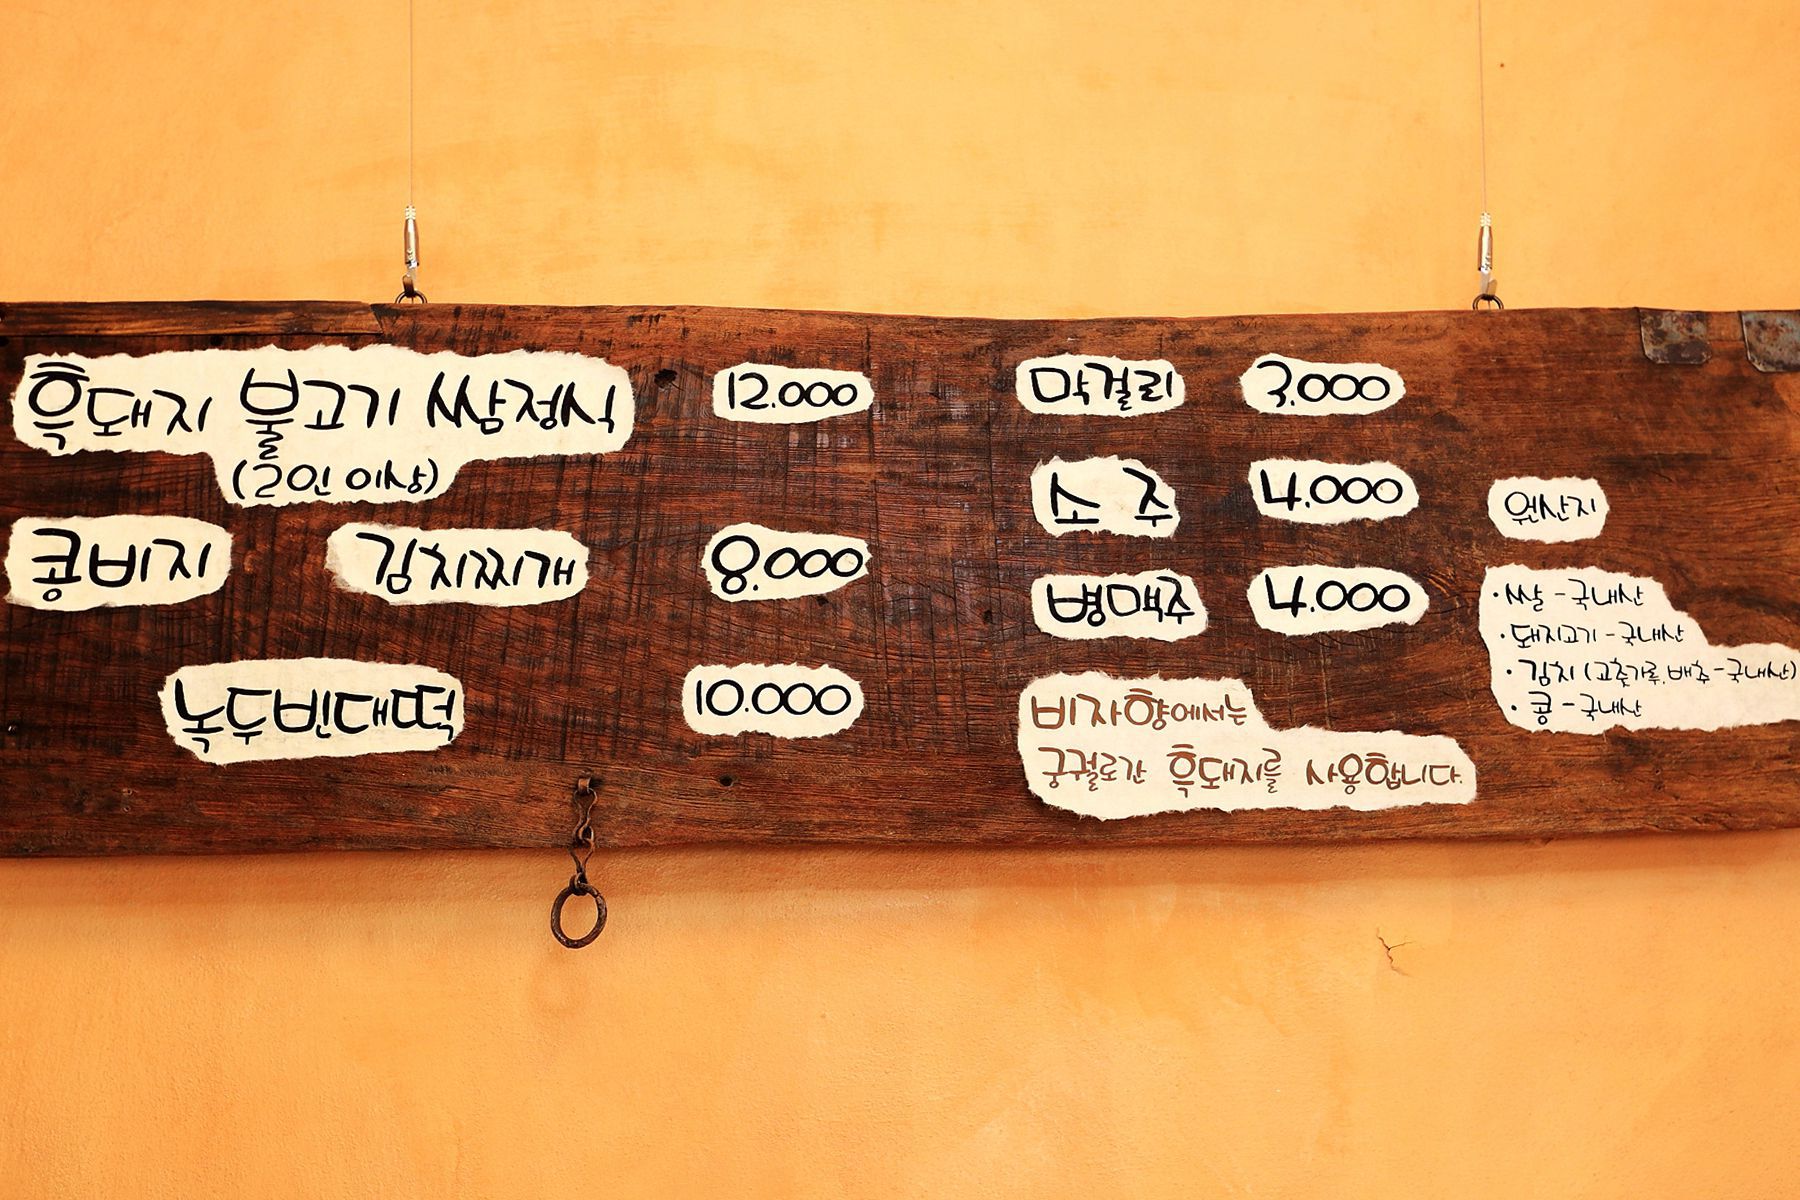 흑돼지 불고기 쌈정식 12.000
(2인 이상)
콩비지 김치찌개 8.000
녹두빈대떡 10.000
막걸리 3.000
소 주 4.000
병맥주 4.000
비자향에서는
궁궐로간 흑돼지를 사용합니다.
원산지
·쌀-국내산
·돼지고기-국내산
·김치(고춧가루,배추-국내산)
·콩-국내산